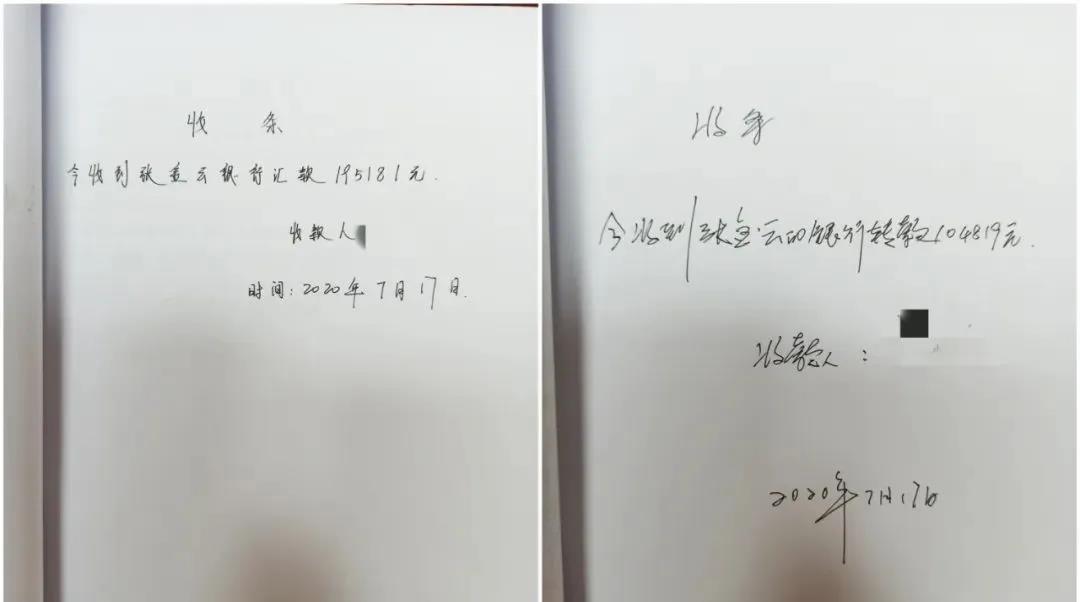 收 条
今收到张金云银行汇款195181元.
收款人
时间:2020年7月17日.
收条
今收到张金云的银行转款104819元.
收款人:
2020年7月17日